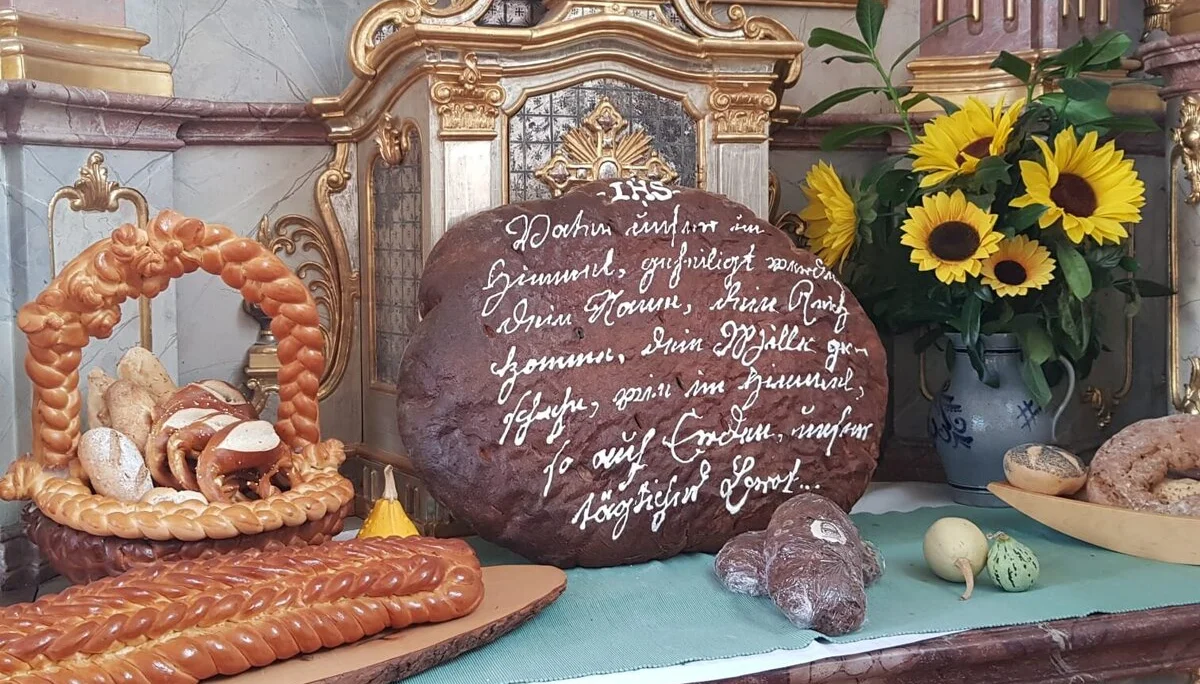 IHS
Vater unser im
Himmel, geheiligt werde
Dein Name, dein Reich
komme, dein Wille ge-
schehe, wie im Himmel,
so auf Erden, unser
täglisches Brot...